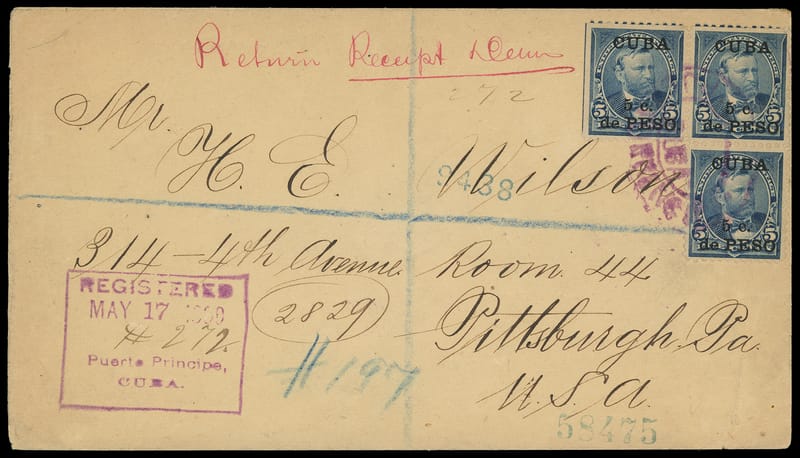 Return Receipt Dem
CUBA
5 c.
de PESO
CUBA
5 c.
de PESO
272
Mr. H. E. Wilson
9438
CUBA
5 c.
de PESO
314 - 4th Avenue. Room. 44
REGISTERED
MAY 17 1899
# 272
Puerto Principe,
CUBA.
2829
# 197
Pittsburgh, Pa.
U. S. A.
58475